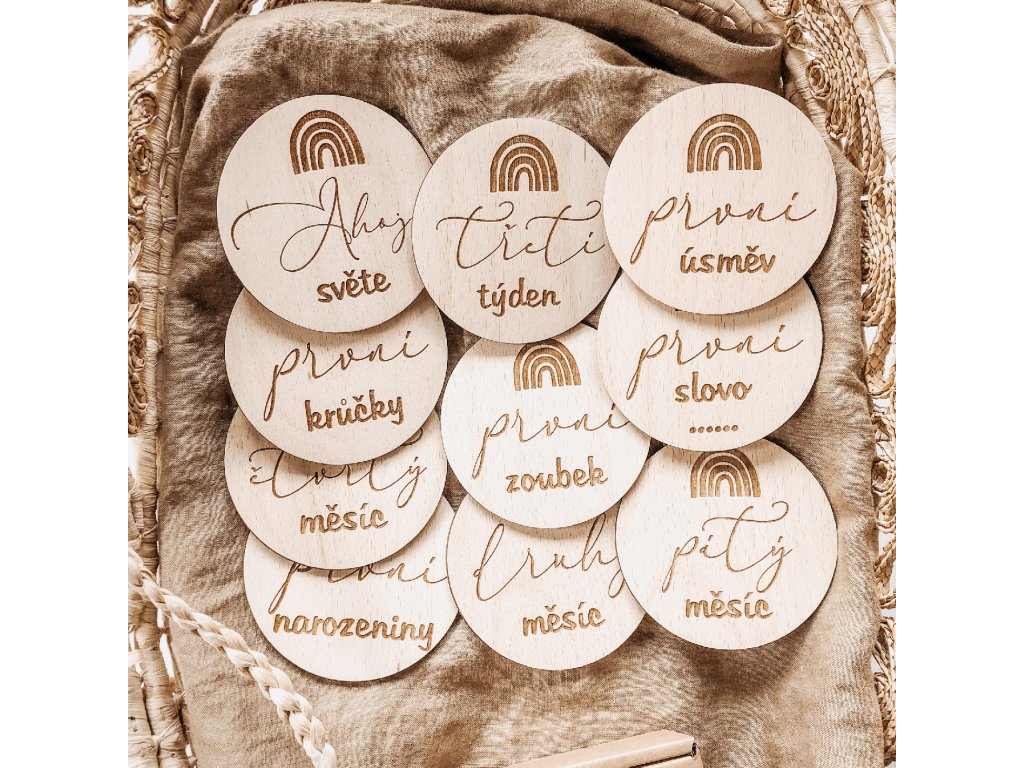 Ahoj
světe
třetí
týden
první
úsměv
první
krůčky
první
zoubek
první
slovo
......
čtvrtý
měsíc
první
narozeniny
druhý
měsíc
pátý
měsíc